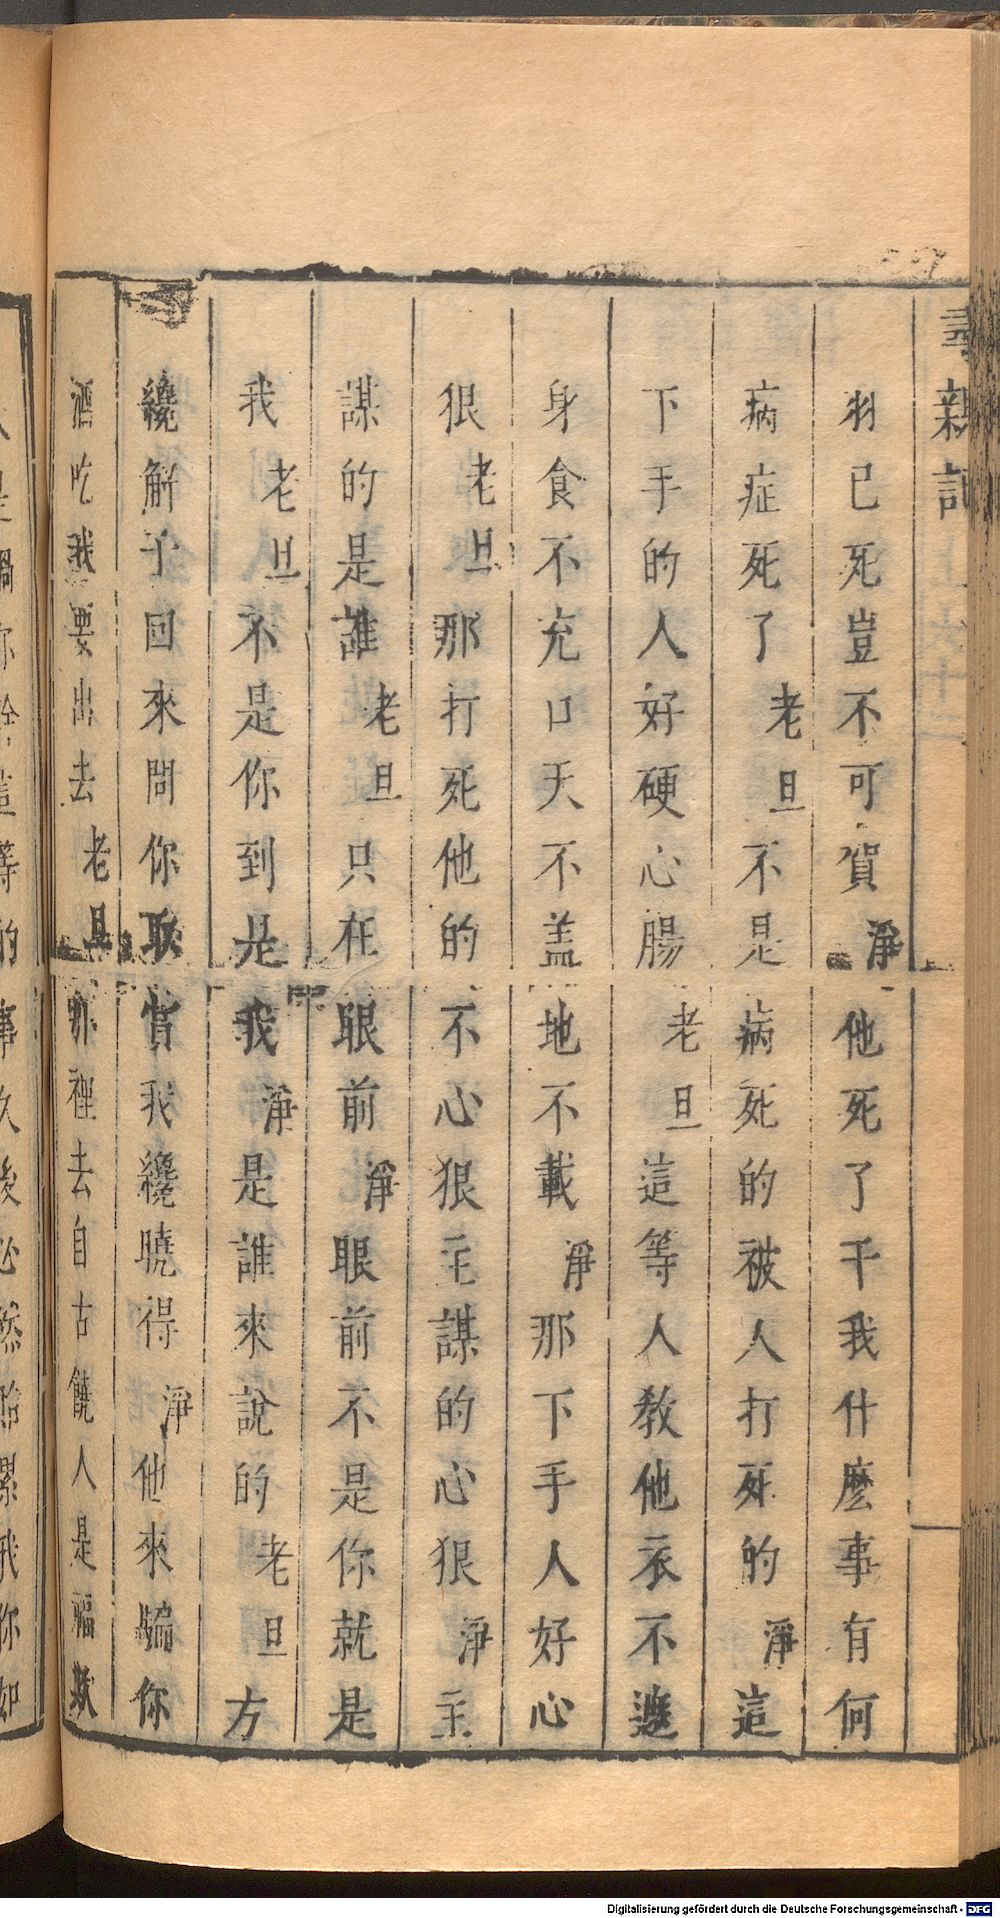 尋親記
羽已死豈不可賀淨他死了干我什麽事有何
病症死了老旦不是病死的被人打死的淨這
下手的人好硬心腸老旦這等人教他衣不遮
身食不充口天不盖地不載淨那下手人好心
狠老旦那打死他的不心狠主謀的心狠淨主
謀的是誰老旦只在眼前淨眼前不是你就是
我老旦不是你到是我淨是誰來說的老旦方
纔解子回來問你取賞我纔曉得淨他來騙你
酒吃我要出去老旦那裡去自古饒人是福欺
是禍你於這等的事久後必然貽累我你如
Digitalisierung gefördert durch die Deutsche Forschungsgemeinschaft - DFG